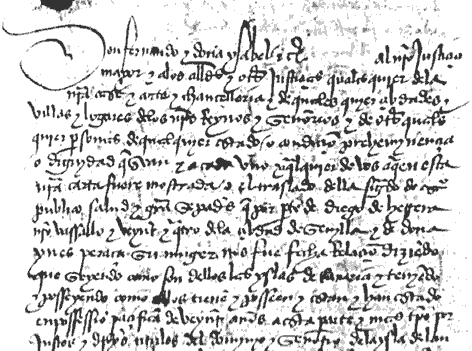 Don fernando y doña ysabel etc al nro Justiçia
mayor y alos alldes y otras Justiçias qualesquier dela
nra casa y corte y chancelleria y de qualesquier çibdades y
villas y logares delos nros Reynos y Señorios y de otras qualesquier
personas de qualquier estado o condiçion preheminençia
o dignidad que sean y a cada vno y qualquier de vos a quien esta
nra carta fuere mostrada o el traslado della signado de escriuano
publico salud y graçia Sepades que por parte de diego de herrera
nro vasallo y veynt y quatro dela çibdad de Seuilla y de doña
ynes peraça Su muger nos fue fecha Relaçion diziendo
que Seyendo como son dellos las yslas de Canaria y teniendo
y posseyendo como las tienen y posseen y han estado
en possession paçifica de veynte años a esta parte y mas tpo por
Justos y derechos titulos del dominio y Señorio dela ysla de lan